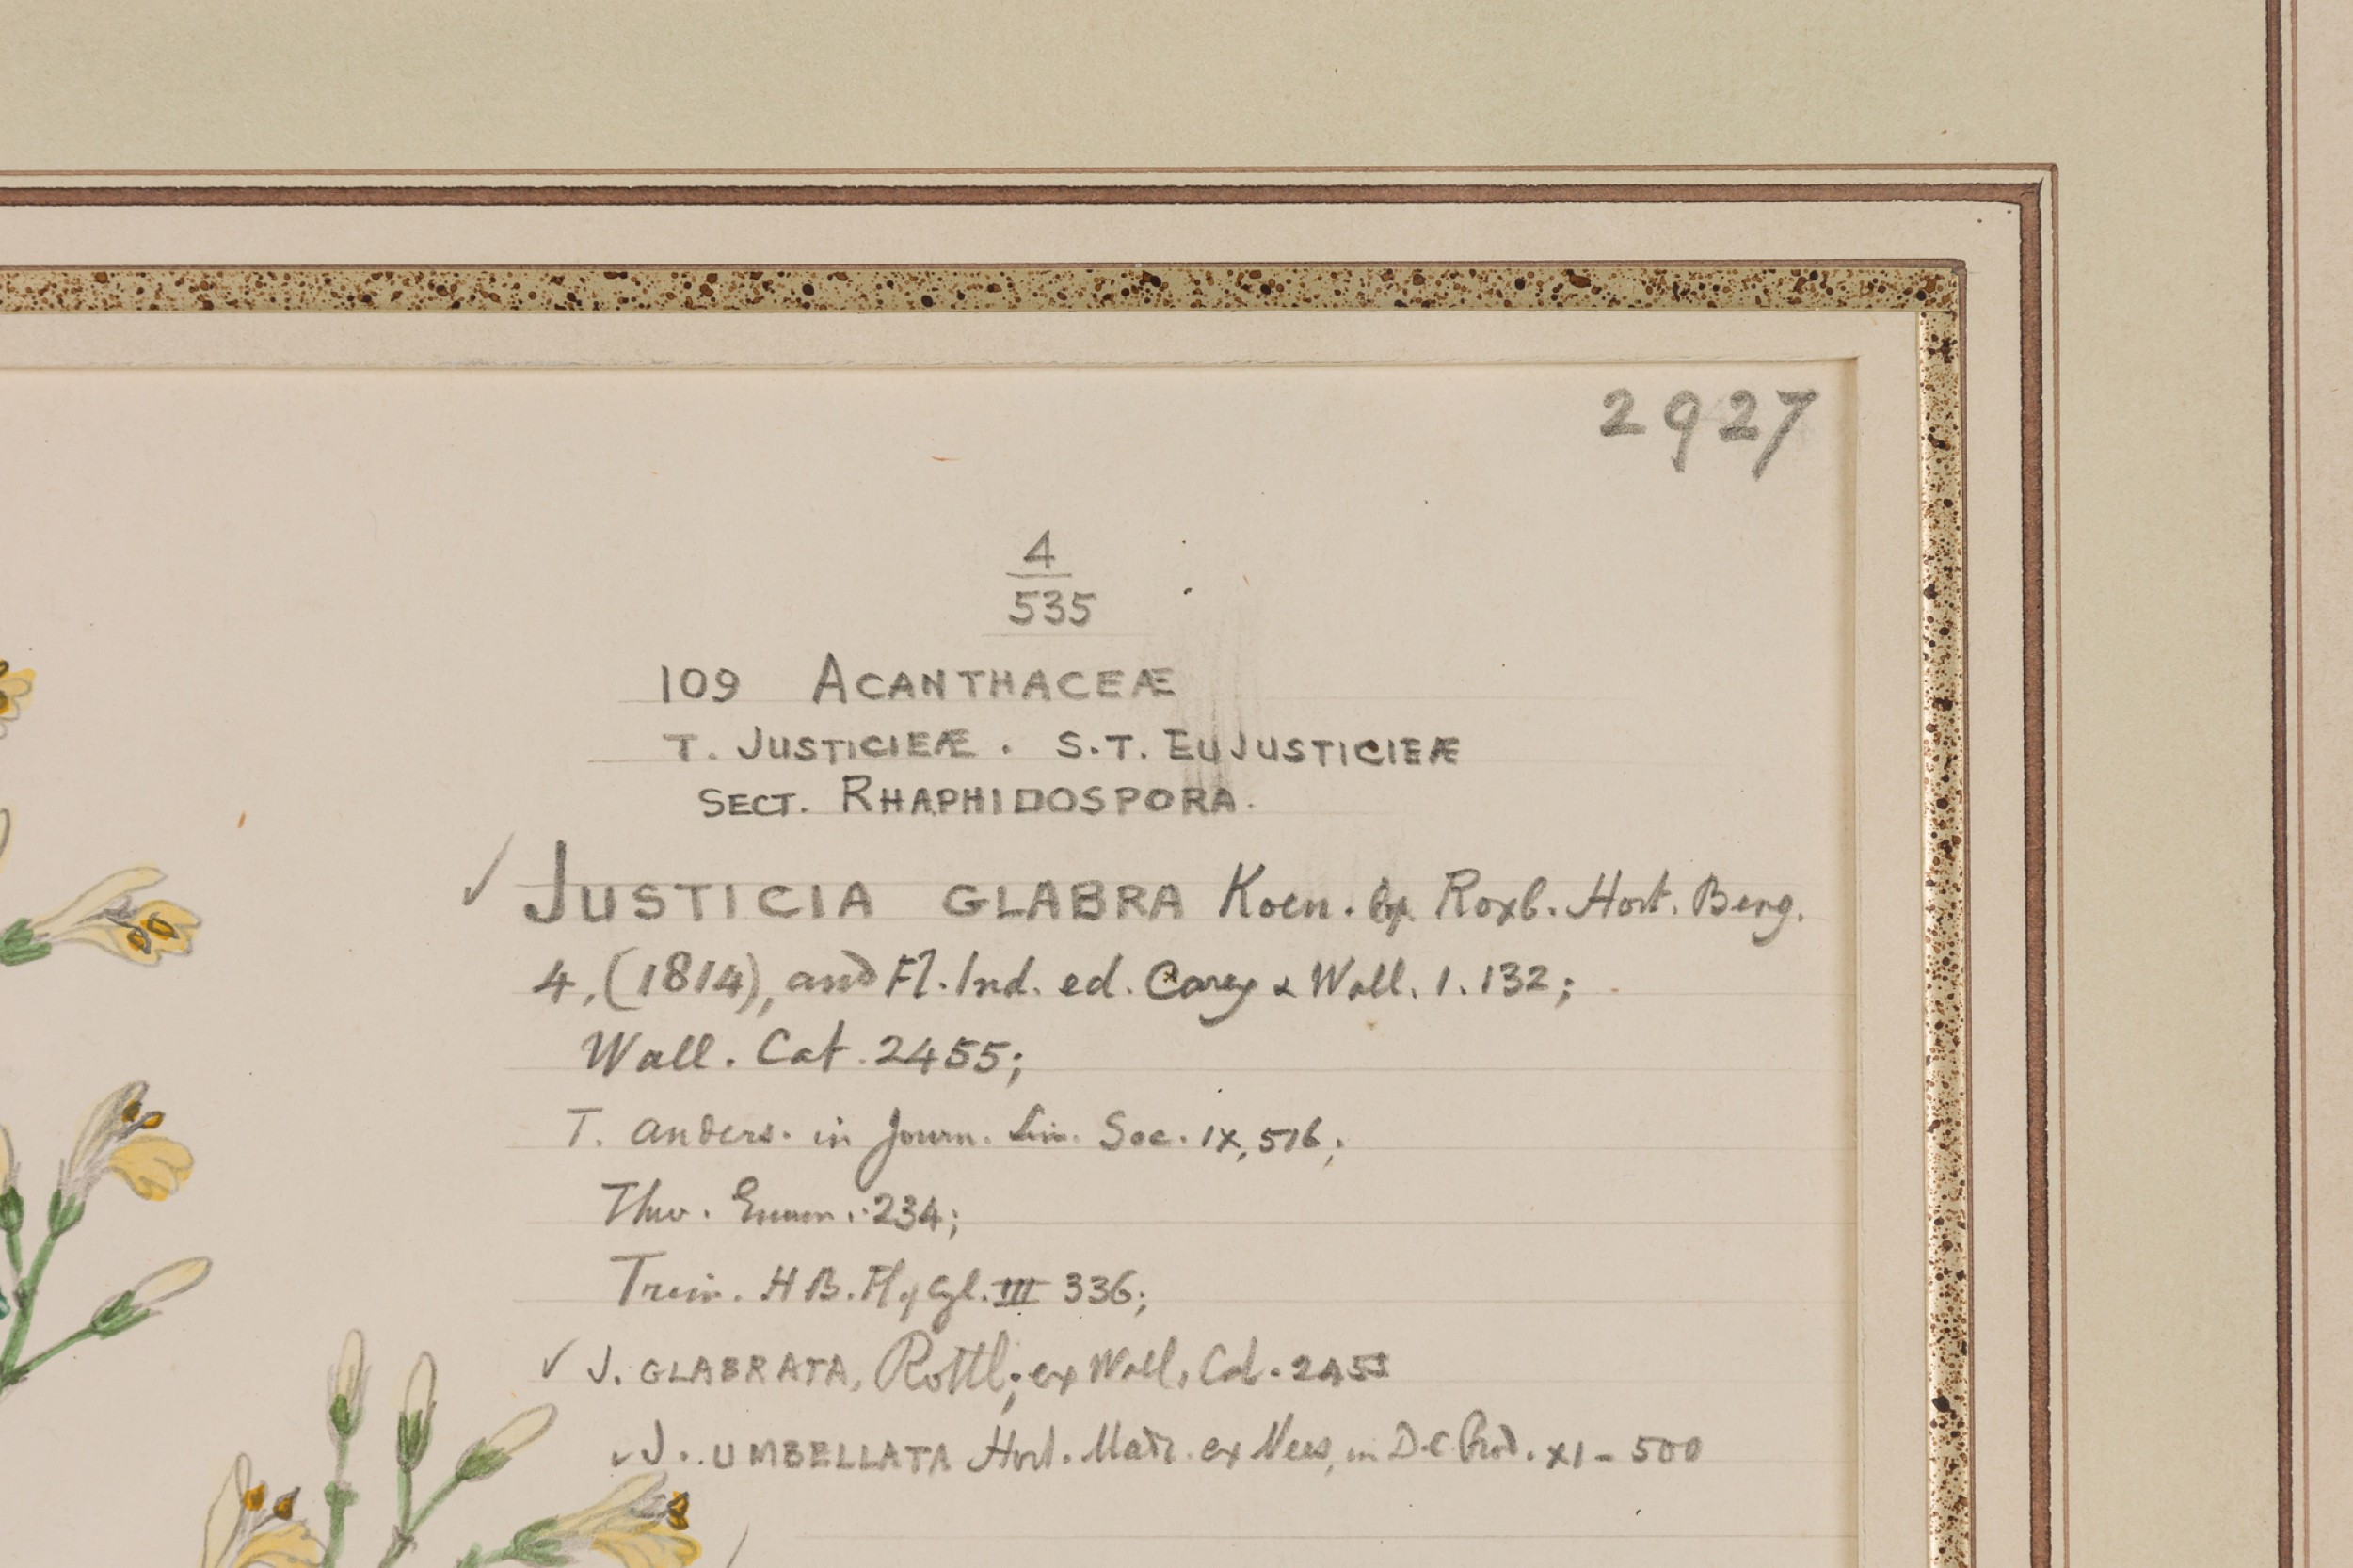 2927
4
535
109 ACANTHACEÆ
T. JUSTICIEÆ. S.T. EUJUSTICIEÆ
SECT. RHAPHIDOSPORA.
✓ JUSTICIA GLABRA Koen. Roxb. Hort. Beng.
4, (1814), and Fl. Ind. ed. Carey & Wall. 1. 132;
Wall. Cat. 2455;
T. anders. in Journ. Lin. Soc. IX, 516;
Thw. Enum. 234;
Trim. H B. Fl. Cyl. III 336;
✓ J. GLABRATA, Rottl; ex Wall. Cat. 2455
✓ J. UMBELLATA Hort. Madr. ex Nees, in D.C. Prod. XI - 500